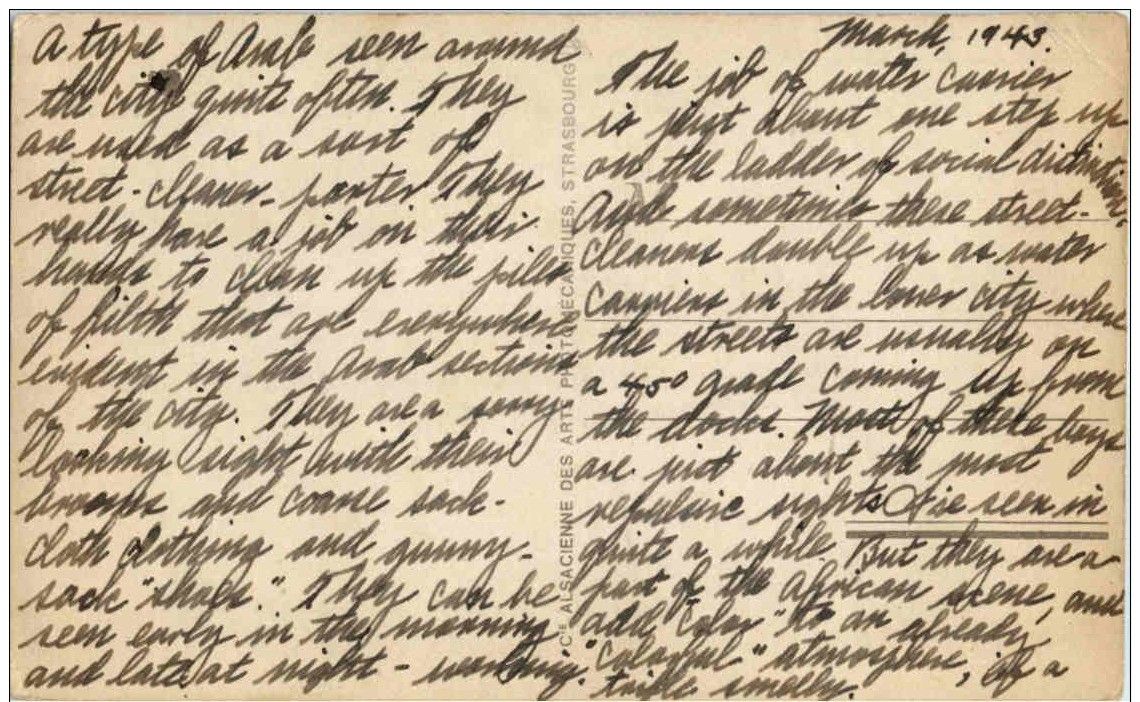 A type of Arab seen around
the city quite often. They
are used as a sort of
street-cleaner-porter. They
really have a job on their
hands to clean up the piles
of filth that are everywhere
evident in the Arab sections
of the city. They are a sorry
looking sight with their
brooms and coarse sack-
cloth clothing and gunny-
sack "shoes." They can be
seen early in the morning
and late at night - working.
Cie ALSACIENNE DES ARTS PHOTOMÉCANIQUES, STRASBOURG
March, 1943.
The job of water carrier
is just about one step up
on the ladder of social distinction.
And sometimes these street-
cleaners double up as water
carriers in the lower city where
the streets are usually on
a 45° grade coming up from
the docks. Most of these boys
are just about the most
repulsive sights I've seen in
quite a while. But they are a
part of the African scene, and
add "color" to an already
"colorful" atmosphere, if a
trifle smelly.